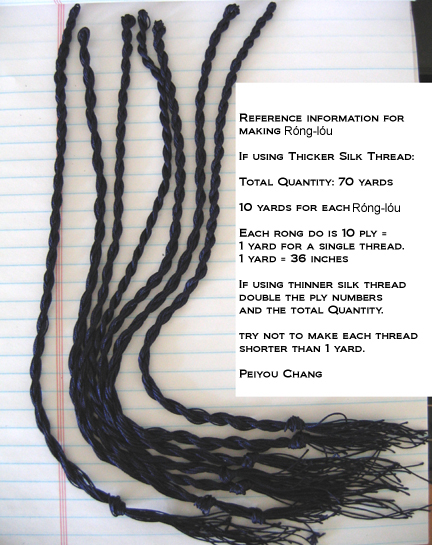 Reference information for
making Róng-lóu
If using Thicker Silk Thread:
Total Quantity: 70 yards
10 yards for each Róng-lóu
Each rong do is 10 ply =
1 yard for a single thread.
1 yard = 36 inches
If using thinner silk thread
double the ply numbers
and the total Quantity.
try not to make each thread
shorter than 1 yard.
Peiyou Chang